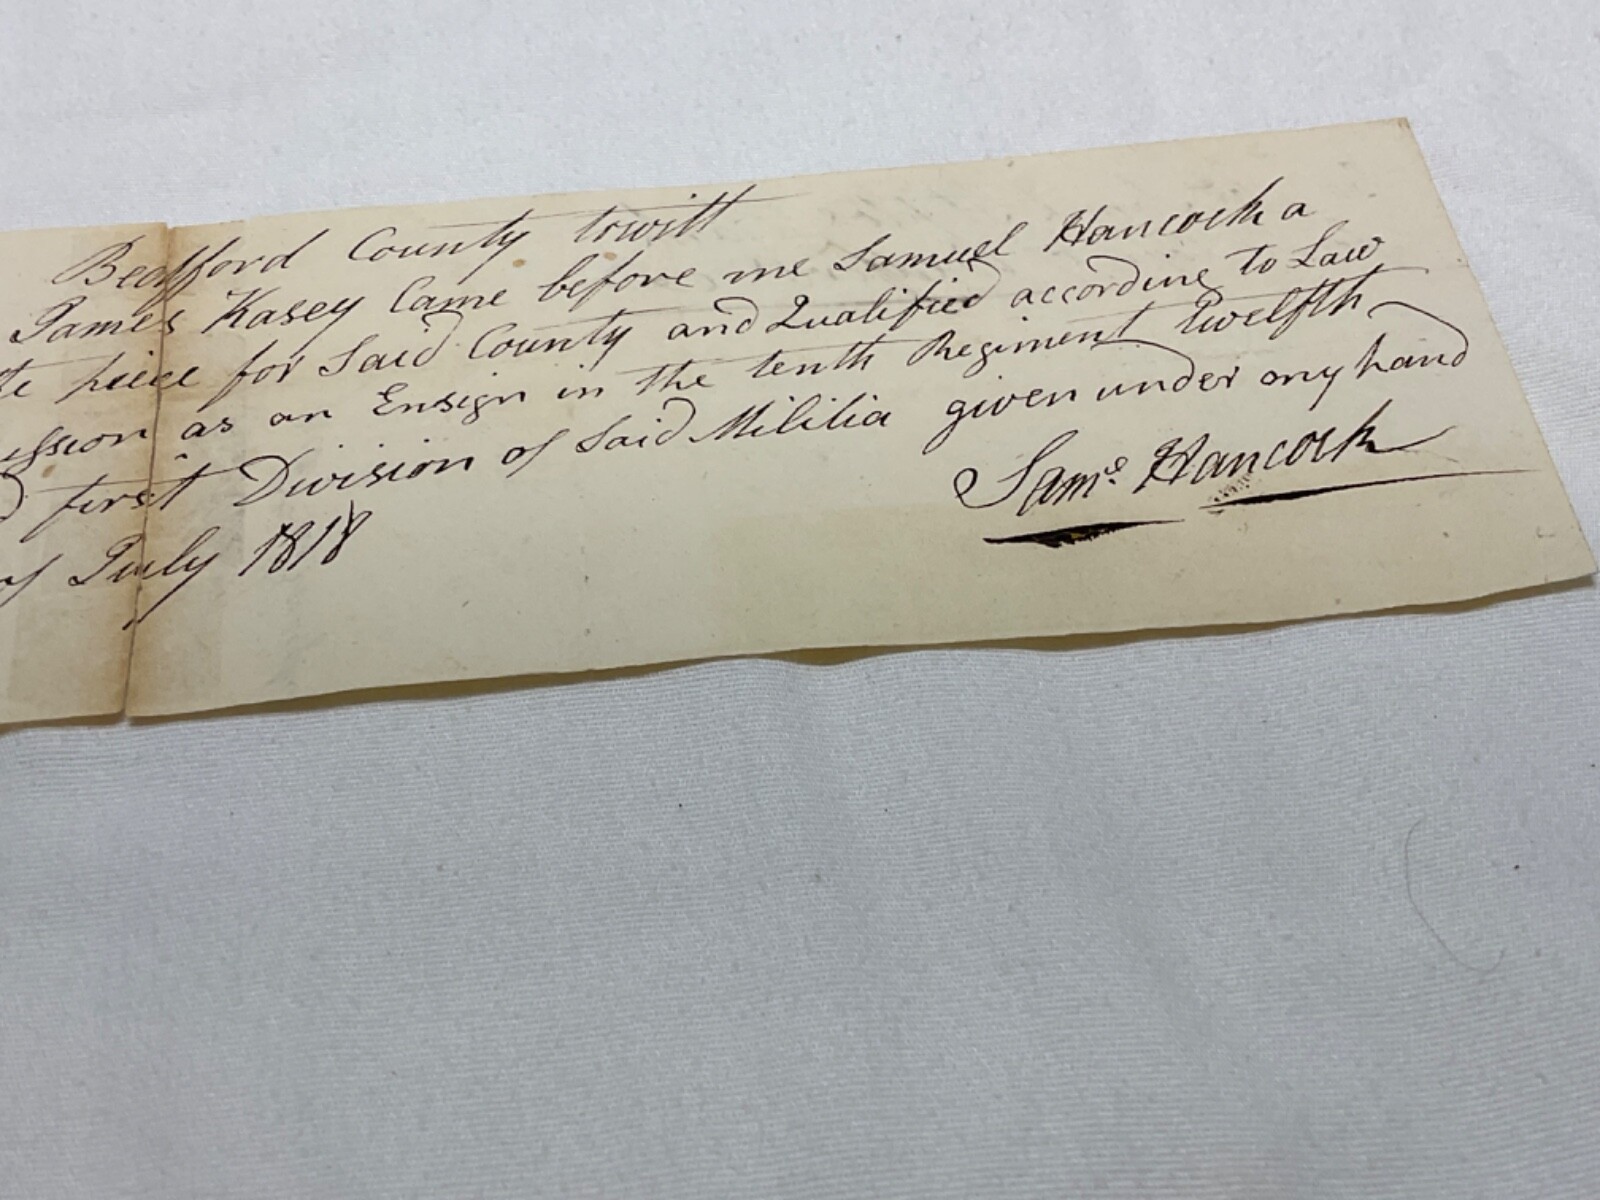 Bedfford County towitt
James Kasey Came before me Samuel Hancock a
te piece for Said County and Qualified according to Law
ission as an Ensign in the tenth Regiment Twelfth
d first Division of Said Militia given under my hand
of July 1818
Samˡ Hancock